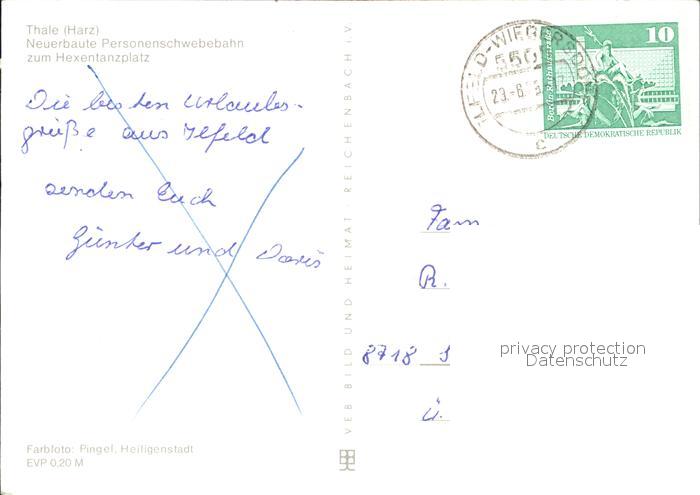 Thale (Harz)
Neuerbaute Personenschwebebahn
zum Hexentanzplatz
Die besten Urlaubs-
grüße aus Ilfeld
senden Euch
Günter und Doris
Farbfoto: Pingel, Heiligenstadt
EVP 0,20 M
VEB BILD UND HEIMAT · REICHENBACH i. V.
ILFELD-WIEGERSDORF
5505
23.-8.
c
10
Berlin, Rathausstraße
DEUTSCHE DEMOKRATISCHE REPUBLIK
Fam
R.
8718 S
Ü.
privacy protection
Datenschutz